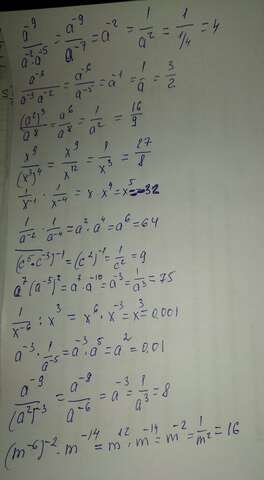 a⁻⁹/(a⁻²·a⁻⁵) = a⁻⁹/a⁻⁷ = a⁻² = 1/a² = 1/(1/4) = 4
a⁻⁶/(a⁻³·a⁻²) = a⁻⁶/a⁻⁵ = a⁻¹ = 1/a = 3/2
(a²)³/a⁸ = a⁶/a⁸ = 1/a² = 16/9
x⁹/(x³)⁴ = x⁹/x¹² = 1/x³ = 27/8
1/x⁻¹ · 1/x⁻⁴ = x · x⁴ = x⁵ = -32
1/a⁻² · 1/a⁻⁴ = a² · a⁴ = a⁶ = 64
(c⁵·c⁻³)⁻¹ = (c²)⁻¹ = 1/c² = 9
a⁷(a⁻⁵)² = a⁷·a⁻¹⁰ = a⁻³ = 1/a³ = 75
1/x⁻⁶ : x³ = x⁶ · x⁻³ = x³ = 0,001
a⁻³ · 1/a⁻⁵ = a⁻³·a⁵ = a² = 0,01
a⁻⁹/(a²)⁻³ = a⁻⁹/a⁻⁶ = a⁻³ = 1/a³ = 8
(m⁻⁶)⁻² · m⁻¹⁴ = m¹² · m⁻¹⁴ = m⁻² = 1/m² = 16